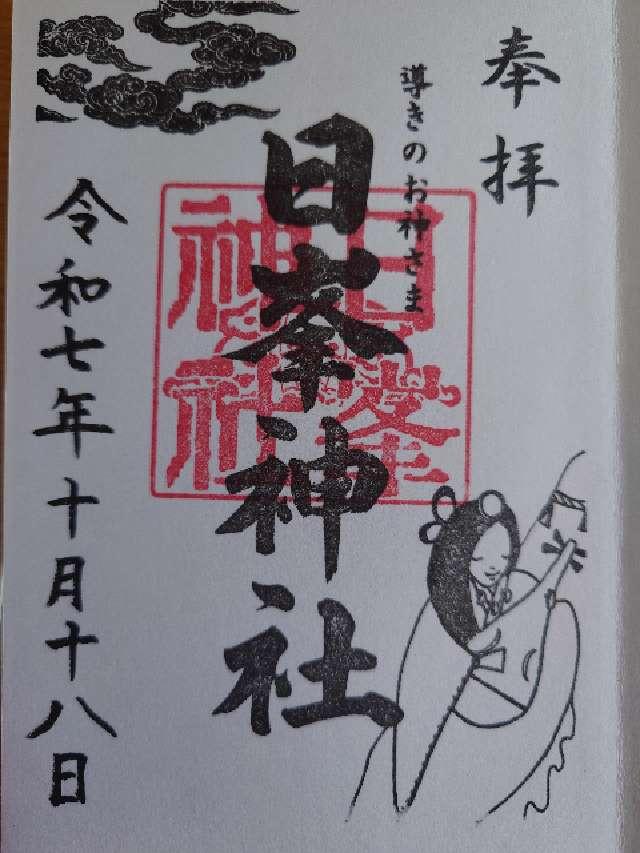 奉拝
導きのお神さま
日峯神社
日峯神社
令和七年十月十八日